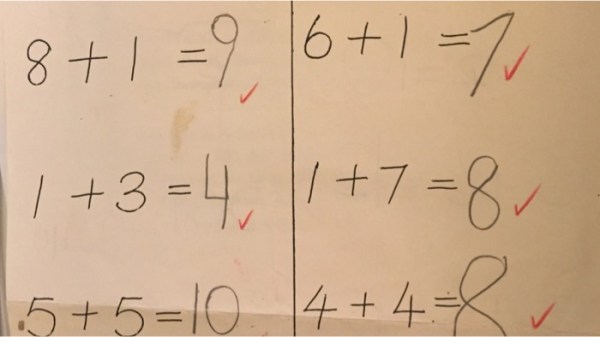 8 + 1 = 9
1 + 3 = 4
5 + 5 = 10
6 + 1 = 7
1 + 7 = 8
4 + 4 = 8